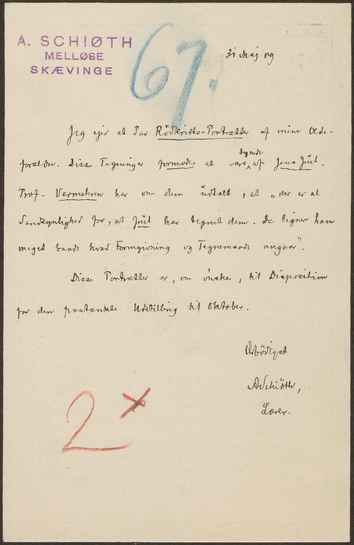 A. SCHIØTH
MELLØSE
SKÆVINGE
67.
31 Maj 09
Jeg ejer et Par Rödkridts-Portrætter af mine Olde-
forældre. Disse Tegninger formodes at være tegnede af Jens Juel.
Prof. Vermehren har om dem udtalt, at "der er al
Sandsynlighed for, at Juel har tegnet dem. De ligner ham
meget baade hvad Formgivning og Tegnemaade angaar".
Disse Portrætter er, om ønskes, til Disposition
for den paatænkte Udstilling til Oktober.
Ærbödigst
A Schiöth,
Lærer.
2 x